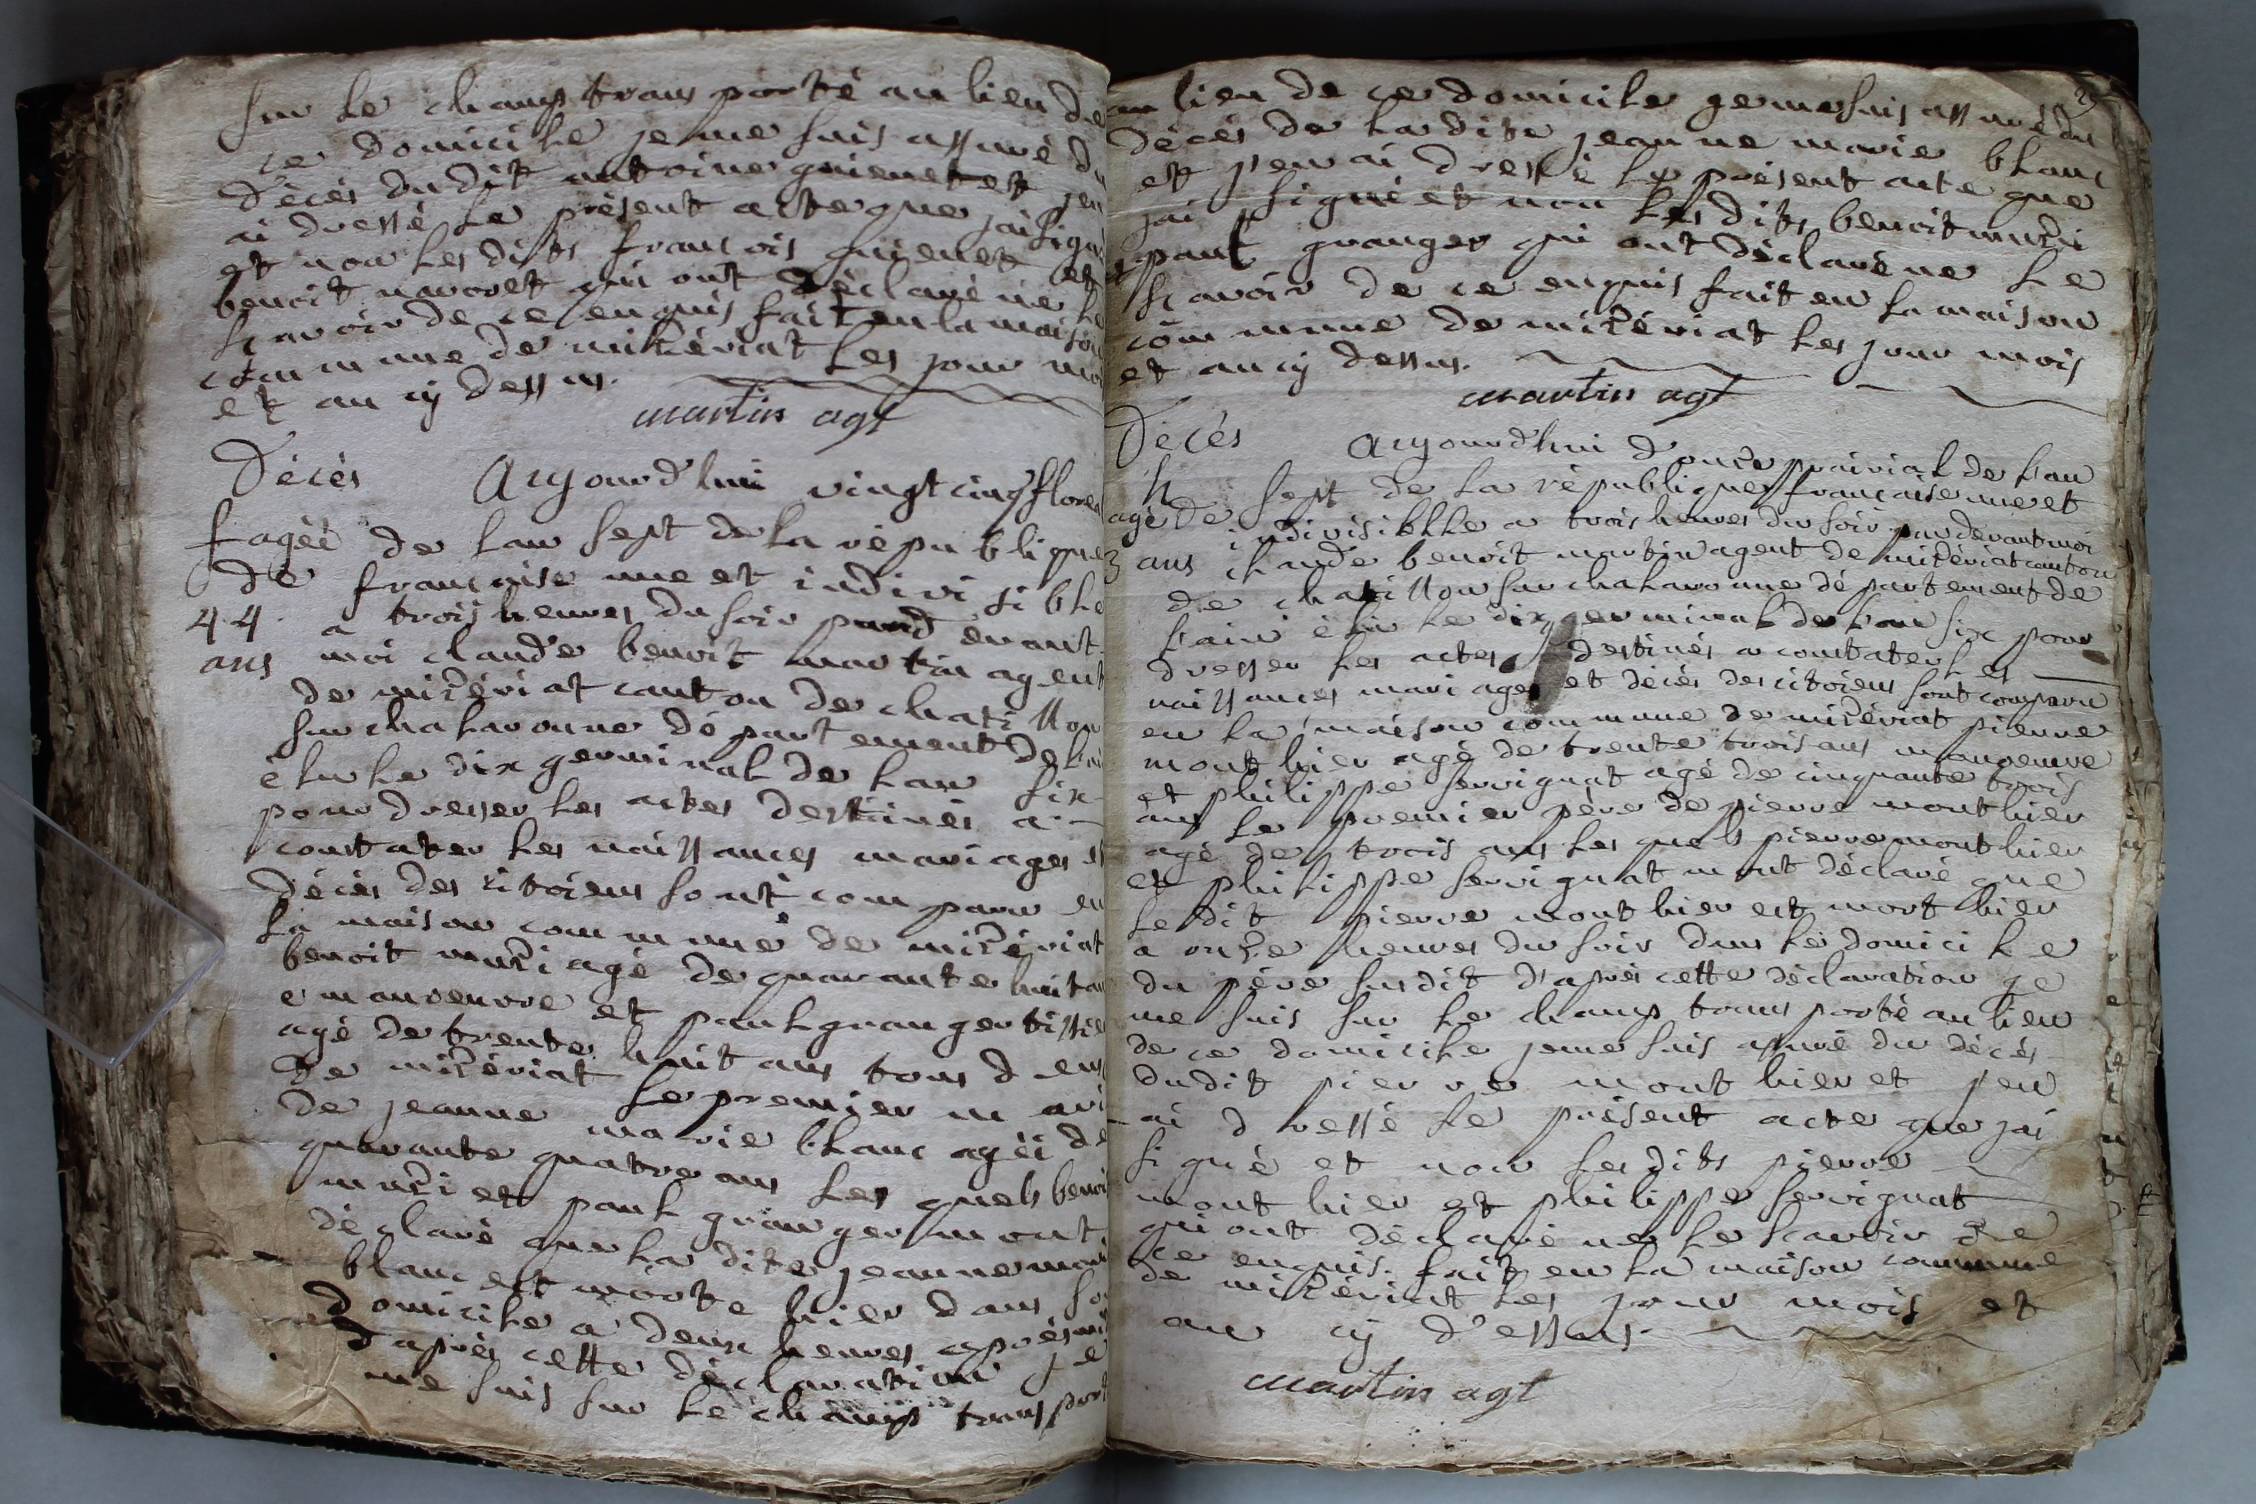 sur le champ transporté au lieu de
ce domicile je me suis assuré du
décés du dit antoine guienet et jen
ai dressé le présent acte que jai signé
et non les dits francois guienet et
benoit navoret qui ont déclaré ne le
scavoir de ce enquis fait en la maison
commune de mizériat les jour mois
et an cy dessus.
martin agt
Décés Aujourd'hui vingt cinq floreal
f agéé de lan sept de la république
de francaise une et indivisible
44 a trois heures du soir pard devant
ans moi claude benoit martin agent
de mizériat canton de chatillon
sur chalaronne département de lain
élu le dix germinal de lan six
pour dresser les actes destinés a
constater les naissances mariages et
décés des citoiens sont comparu en
la maison commune de mizériat
benoit muzi agé de quarante huit ans
manoeuvre et paul granger tissier
agé de trente huit ans tous d eux
de mizériat le premier mari
de jeanne marie blanc agéé de
quarante quatre ans les quels benoit
muzi et paul granger mont
déclaré que la dite jeanne marie
blanc est morte hier dans son
domicile a deux heures aprés midi
d'aprés cette déclaration je
me suis sur le champ transporté
au lieu de ce domicile je me suis assuré du
décés de la dite jeanne marie blanc
et j'en ai dressé le présent acte que
jai signé et non les dits benoit muzi
et paul granger qui ont déclaré ne le
scavoir de ce enquis fait en la maison
commune de mizériat les jour mois
et an cy dessus.
martin agt
Décés Aujourd'hui d ouze prairial de l'an
h sept de la république francaise une et
agé de indivisiblle a trois heures du soir par devant moi
3 ans claude benoit martin agent de mizériat canton
de chatillon sur chalaronne département de
l'ain élu le dix germinal de l'an six pour
dresser les actes destinés a constater les
naissances mariages et décés des citoiens sont comparu
en la maison commune de mizériat pierre
monthier agé de trente trois ans manoeuvre
et philippe servignat agé de cinquante trois
ans le premier pére de pierre monthier
agé de trois ans les quels pierre monthier
et philippe servignat mont déclaré que
le dit pierre monthier est mort hier
a onze heures du soir dans le domicile
du pére susdit d'aprés cette déclaration je
me suis sur le champ transporté au lieu
de ce domicile je me suis assuré du décés
dudit pierre monthier et jen
ai dressé le présent acte que jai
signé et non les dits pierre
monthier et philippe servignat
qui ont déclaré ne le scavoir de
ce enquis. fait en la maison commune
de mizériat les jour mois et
an cy d'essus.
martin agt